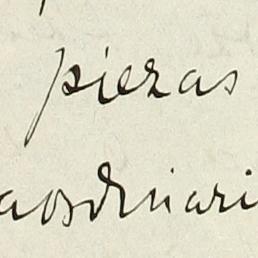 piezas
aordinari